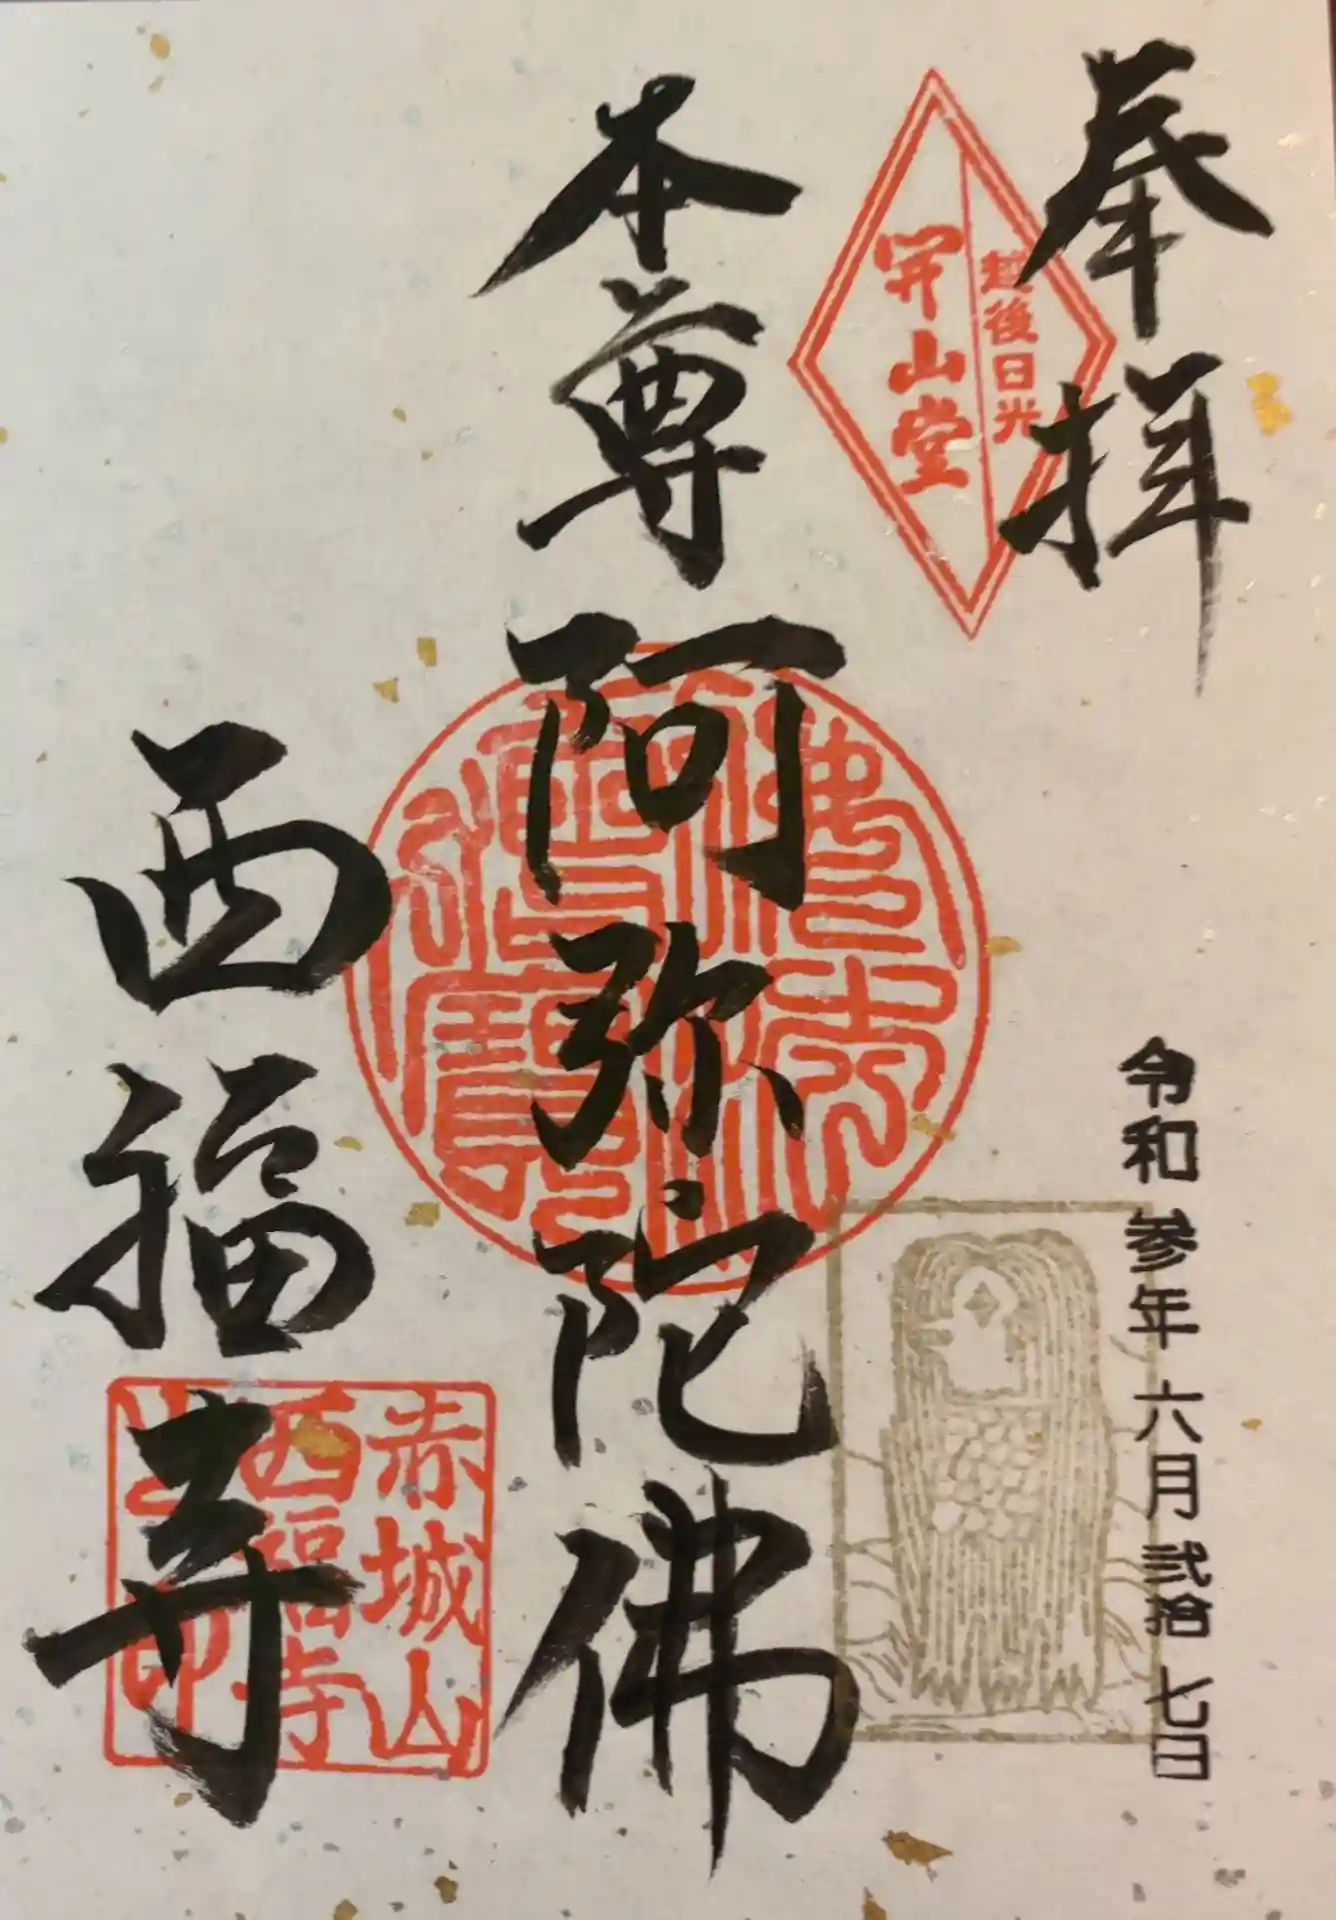 奉拝
越後日光
開山堂
令和参年六月弐拾七日
本尊阿弥陀佛
佛法僧寶
西福寺
赤城山
西福寺